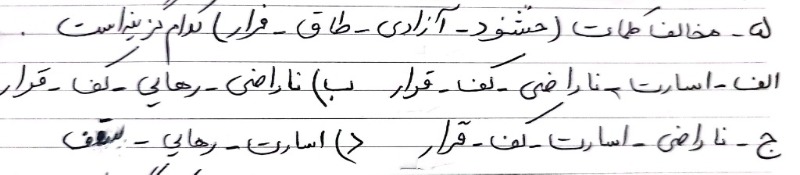 ۵- مخالف کلمات (خشنود - آزادی - طاق - فرار) کدام گزینه است .
الف - اسارت - ناراضی - کف - قرار ب) ناراضی - رهایی - کف - قرار
ج - ناراضی - اسارت - کف - قرار د) اسارت - رهایی - سقف